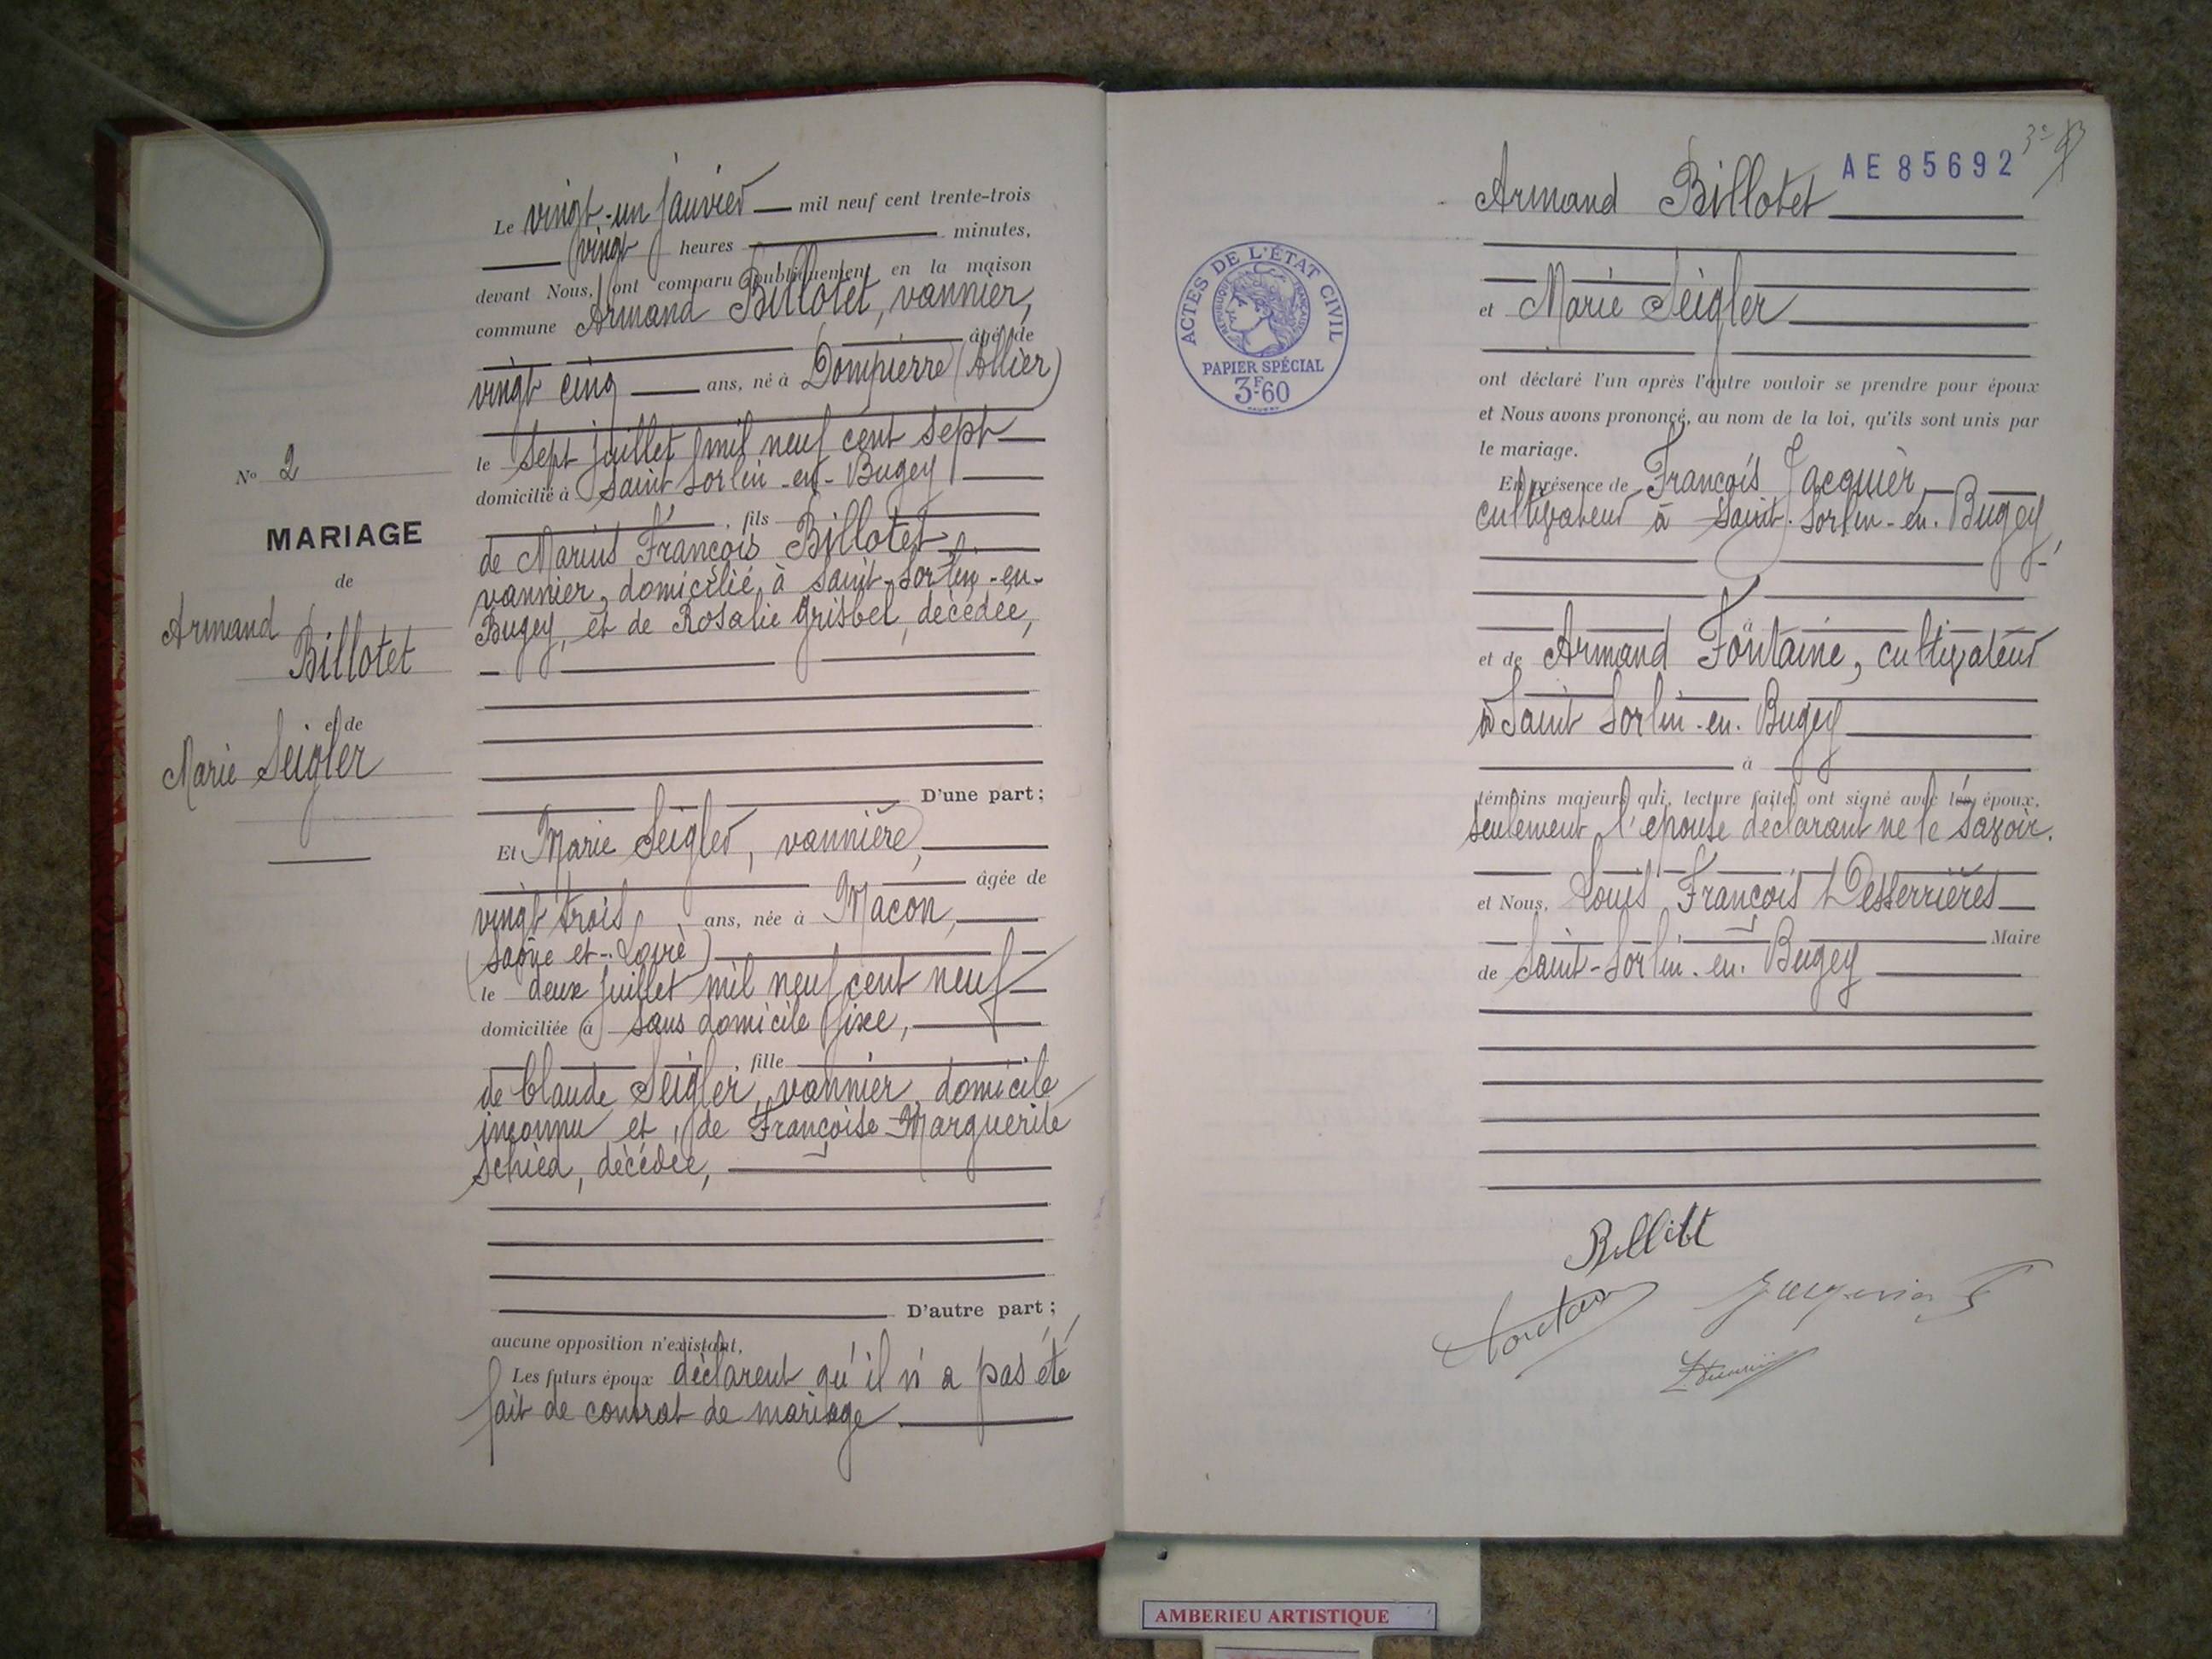 Le vingt-un janvier mil neuf cent trente-trois
vingt heures minutes,
devant Nous, ont comparu publiquement en la maison
commune Armand Billotet, vannier,
âgé de
vingt cinq ans, né à Dompierre (Allier)
le sept juillet mil neuf cent sept
domicilié à Saint Sorlin-en-Bugey
, fils
de Marius François Billotet,
vannier, domicilié à Saint-Sorlin-en-
Bugey, et de Rosalie Grisbel, décédée,
D'une part;
Et Marie Seigler, vannière,
âgée de
vingt trois ans, née à Macon,
(Saône et-Loire)
le deux juillet mil neuf cent neuf
domiciliée à sans domicile fixe,
, fille
de Claude Seigler, vannier, domicile
inconnu et de Françoise Marguerite
Schied, décédée,
D'autre part;
aucune opposition n'existant,
Les futurs époux déclarent qu'il n'a pas été
fait de contrat de mariage.
No 2
MARIAGE
de
Armand
Billotet
et de
Marie Seigler
AE 85692
Armand Billotet
et Marie Seigler
ont déclaré l'un après l'autre vouloir se prendre pour époux
et Nous avons prononcé, au nom de la loi, qu'ils sont unis par
le mariage.
En présence de François Jacquier,
cultivateur à Saint-Sorlin-en-Bugey,
à
et de Armand Fontaine, cultivateur
à Saint Sorlin-en-Bugey
à
témoins majeurs qui, lecture faite, ont signé avec les époux,
seulement, l'épouse déclarant ne le savoir.
et Nous, Louis François Desserrières
Maire
de Saint-Sorlin-en-Bugey
ACTES DE L'ÉTAT CIVIL
RÉPUBLIQUE FRANÇAISE
PAPIER SPÉCIAL
3F60
AMBERIEU ARTISTIQUE